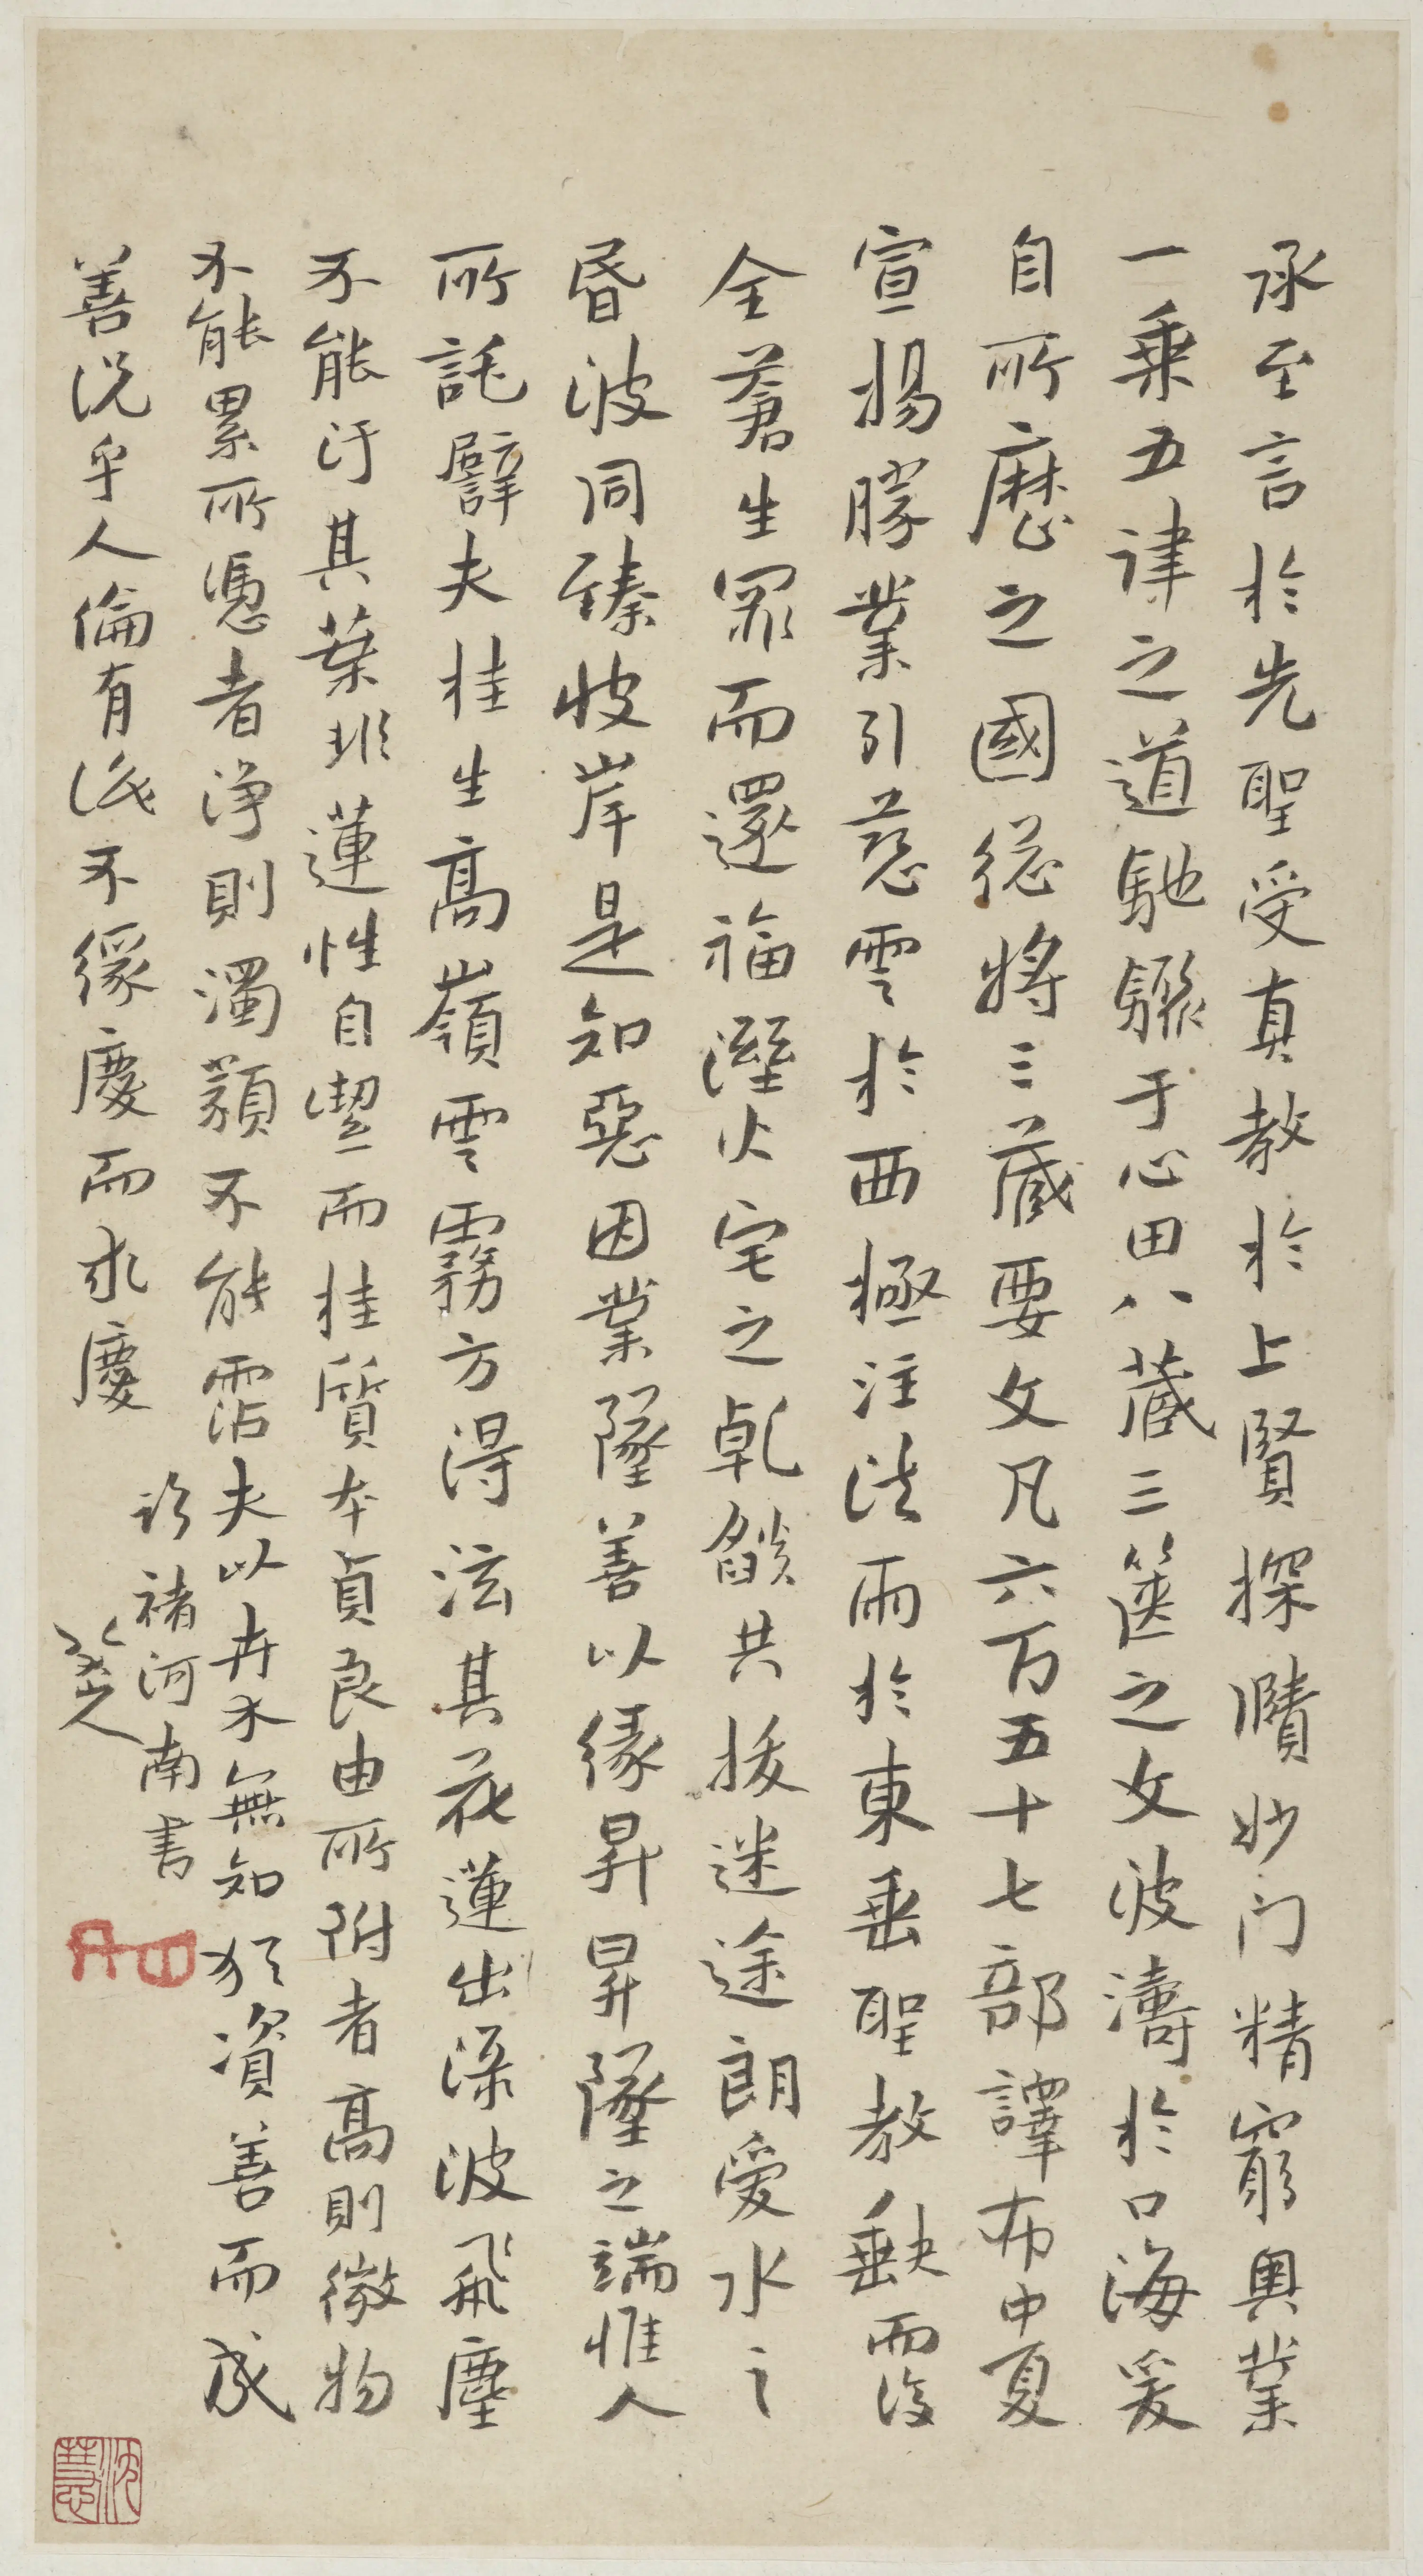 承至言於先聖受真教於上賢探賾妙门精窮奧業
一乘五律之道馳驟于心田八藏三篋之文波濤於口海爰
自所歷之國總將三藏要文凡六百五十七部譯布中夏
宣揚勝業引慈雲於西極注法雨於東垂聖教缺而復
全蒼生罪而還福溼火宅之乾燄共拔迷途朗愛水之
昏波同臻彼岸是知惡因業墜善以緣昇昇墜之端惟人
所託譬夫桂生高嶺雲霧方得泫其花蓮出淥波飛塵
不能汙其葉非蓮性自潔而桂質本貞良由所附者高則微物
不能累所憑者淨則濁類不能霑夫以卉木無知猶資善而成
善況乎人倫有識不緣慶而求慶
臨褚河南書
八大山人
沈慧